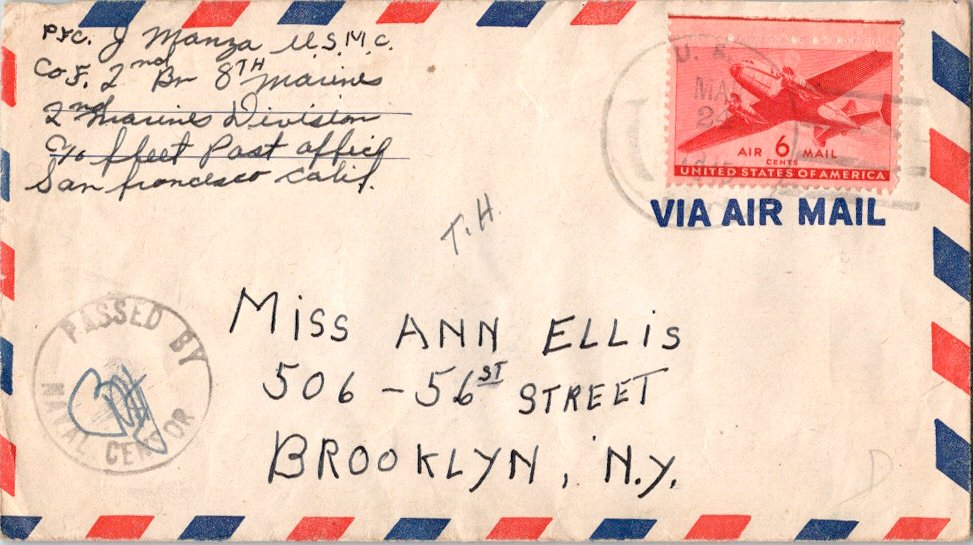 Pfc. J Manza U.S.M.C.
Co F. 2nd Bn 8TH Marines
2nd Marines Division
c/o fleet Post office
San francesco Calif.
U. S.
MA
24
AIR 6 MAIL
CENTS
UNITED STATES OF AMERICA
VIA AIR MAIL
T.H.
PASSED BY
NAVAL CENSOR
MISS ANN ELLIS
506 - 56ST STREET
BROOKLYN, N.Y.
D